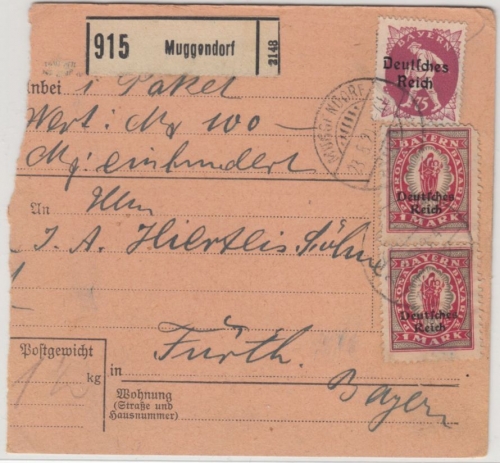 915 Muggendorf 3148
BAYERN
Deutsches
Reich
75
Anbei 1 Paket
Wert: Mk 100 -
Mk: einhundert
MUGGENDORF
An
BAYERN
Deutsches
Reich
1 MARK
J. A. Hiertleis Söhne
BAYERN
Deutsches
Reich
1 MARK
Postgewicht
kg
in Fürth.
Bayern
Wohnung
(Straße und
Hausnummer)